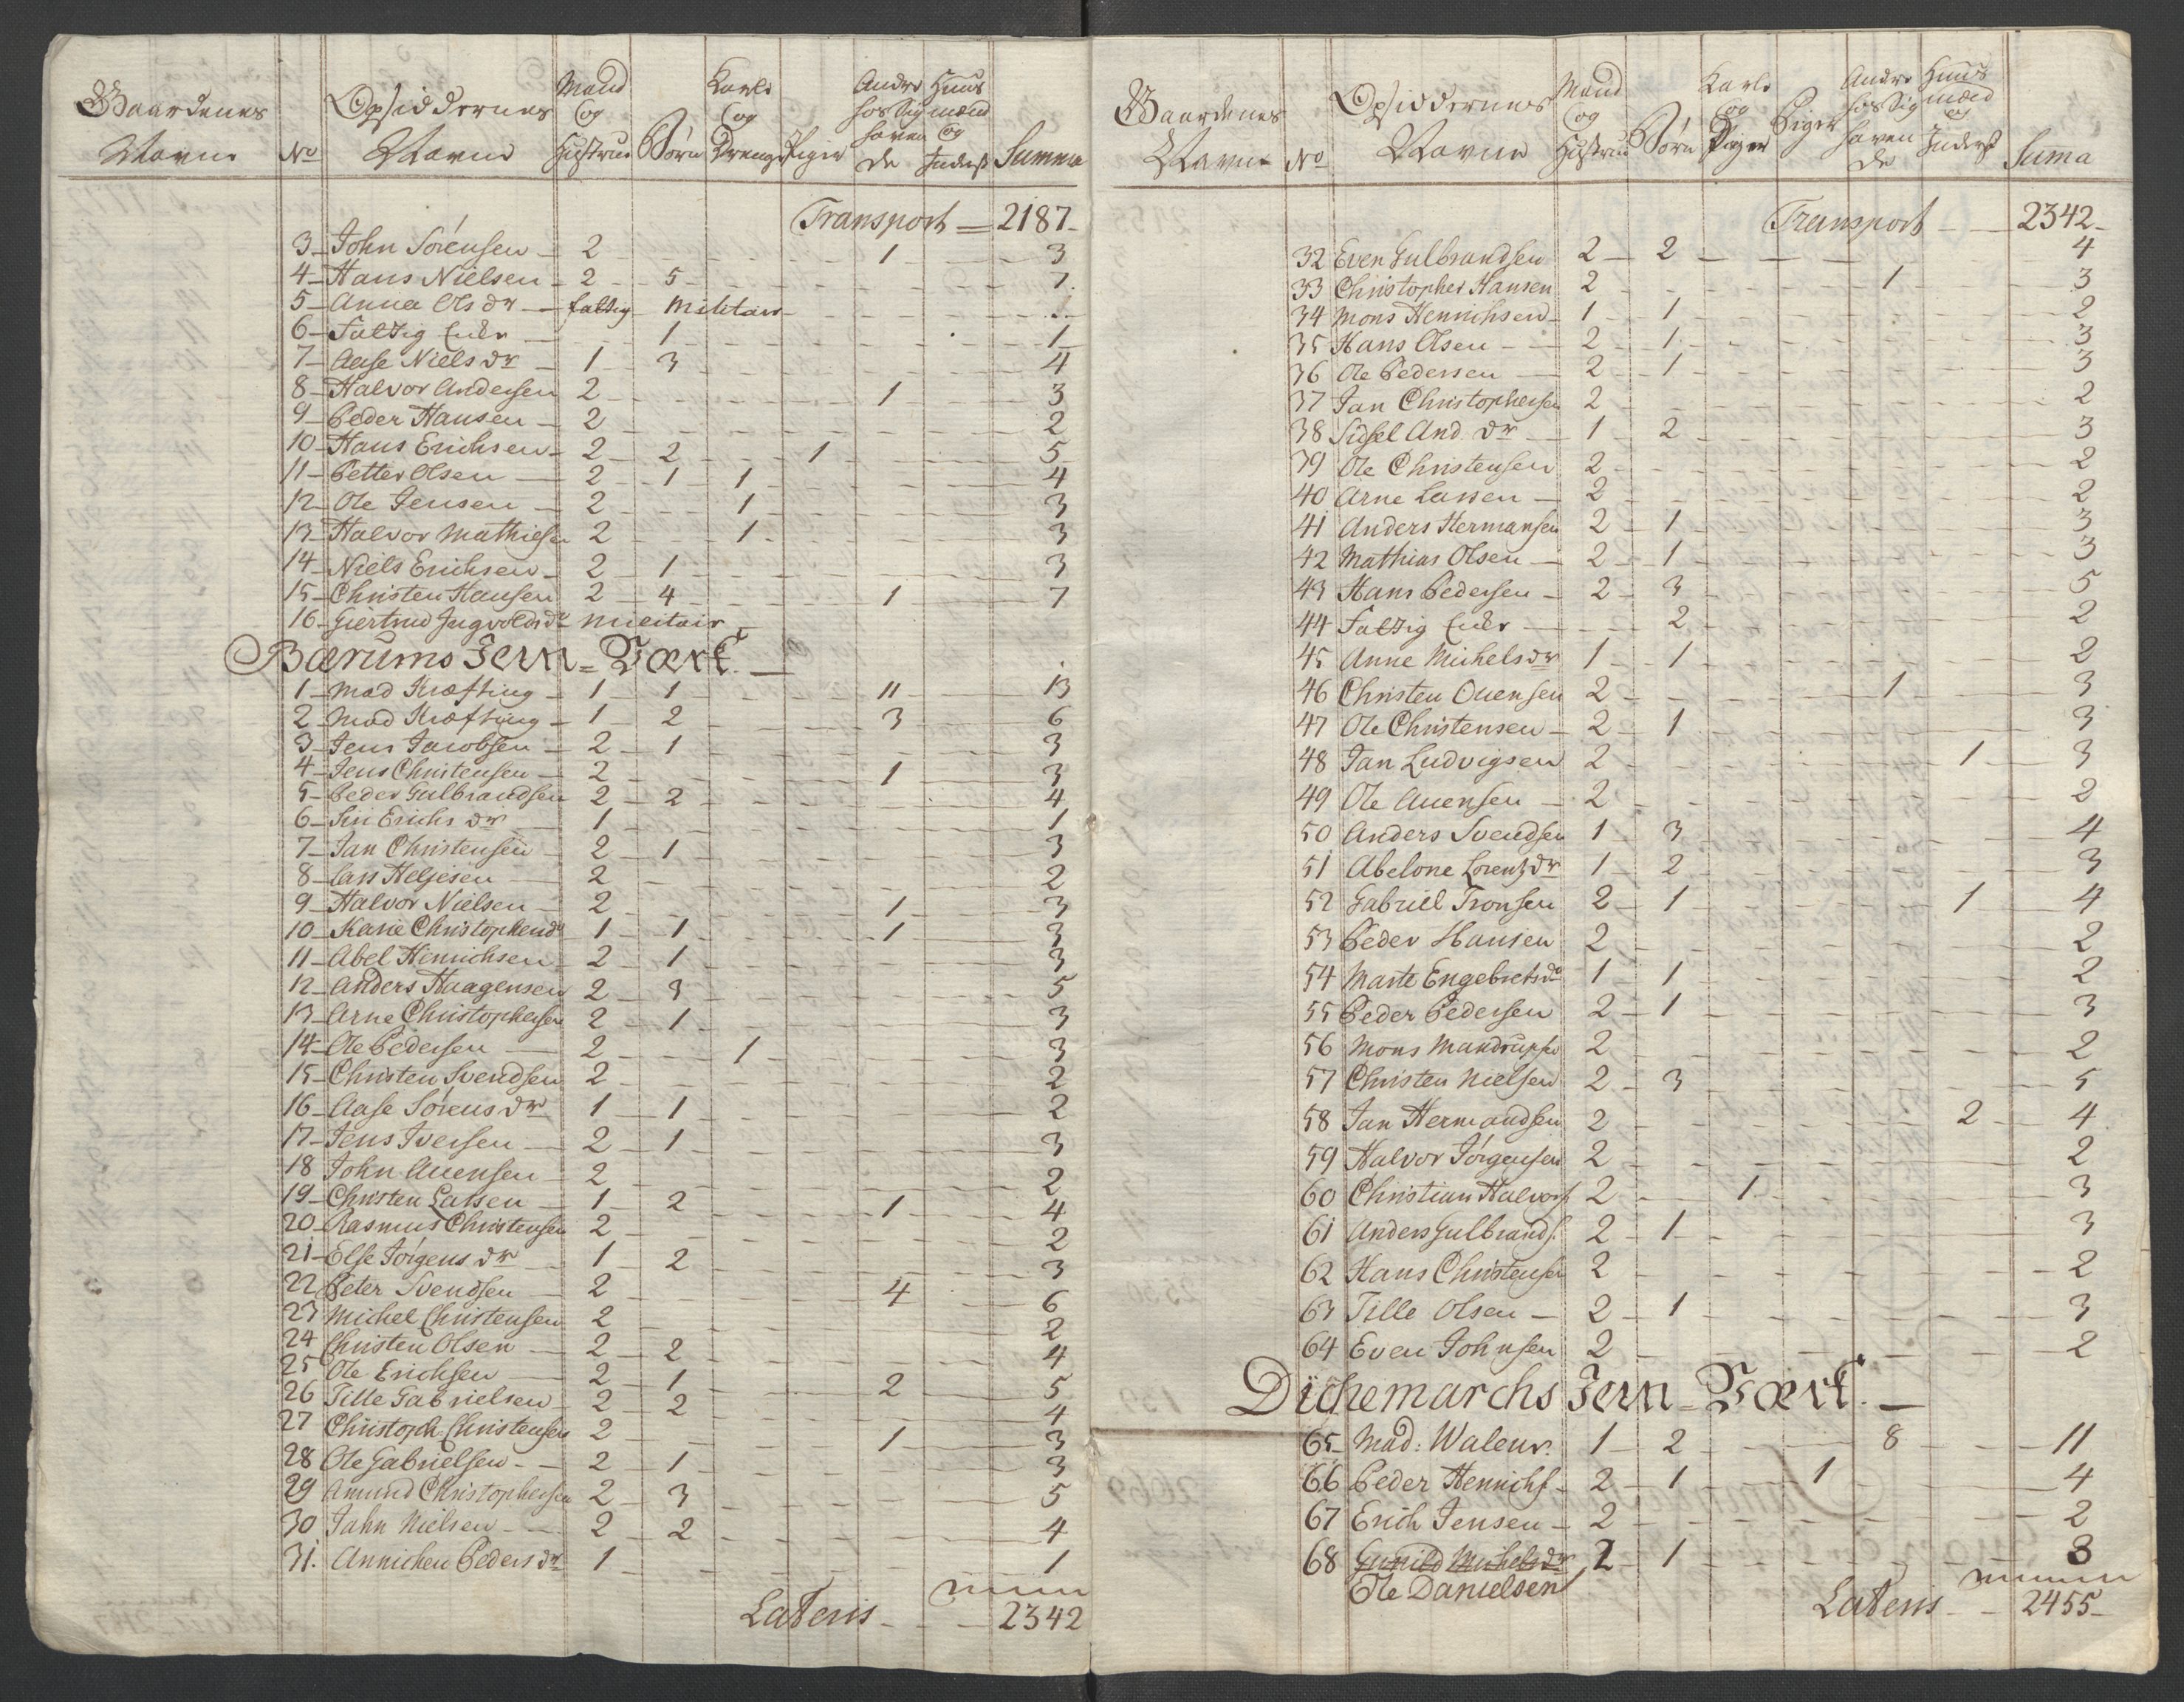 Gaardenes Navne No Opsiddernes Navne Mand og Hustrue Børn Karle og Drenge Piger Andre hos sig havende Huus mænd og Inderst Summa
Transport 2187
3 John Sörensen 2 1 3
4 Hans Nielsen 2 5 7
5 Anna Ols dr fattig Militair
6 Fattig 1 1
7 Aase Niels dr 1 3 4
8 Halvor Andersen 2 1 3
9 Peder Hansen 2 2
10 Hans Erichsen 2 2 1 5
11 Petter Olsen 2 1 1 4
12 Ole Jensen 2 1 3
13 Halvor Mathiesen 2 1 3
14 Niels Erichsen 2 1 3
15 Christen Hansen 2 4 1 7
16 Giertrud Ingvoldsdr Militair
Bærums Jern-Værk
1 Mad Kræfting 1 1 11 13
2 Mad Kræfting 1 2 3 6
3 Jens Jacobsen 2 1 3
4 Jens Christensen 2 1 3
5 Peder Gulbrandsen 2 2 4
6 Siri Erichs dr 1 1
7 Jan Christensen 2 1 3
8 Lars Helgesen 2 2
9 Halvor Nielsen 2 1 3
10 Karie Christophersdr 1 1 1 3
11 Abel Henrichsen 2 1 3
12 Anders Haagensen 2 3 5
13 Arne Christophersen 2 1 3
14 Ole Pedersen 2 1 3
15 Christen Svendsen 2 2
16 Aase Sörens dr 1 1 2
17 Jens Iversen 2 1 3
18 John Auensen 2 2
19 Christen Larsen 1 2 1 4
20 Rasmus Christensen 2 2
21 Else Jörgens dr 1 2 3
22 Peter Svendsen 2 4 6
23 Michel Christensen 2 2
24 Christen Olsen 2 2 4
25 Ole Erichsen 2 1 2 5
26 Tille Gabrielsen 2 2 4
27 Christoph Christensen 2 1 3
28 Ole Gabrielsen 2 1 3
29 Amund Christophersen 2 3 5
30 Jahn Nielsen 2 2 4
31. Annichen Peders dr 1 1
Lateris 2342
Gaardenes Navne No Opsiddernes Navne Mand og Hustrue Børn Karle og Piger Andre hos sig havende Huus mæed og Inderst Suma
Transport 2342
32 Even Gulbrandsen 2 2 4
33 Christopher Hansen 2 1 3
34 Mons Henrichsen 1 1 2
35 Hans Olsen 2 1 3
36 Ole Pedersen 2 1 3
37 Jan Christophersen 2 2
38 Sidsel And. dr 1 2 3
39 Ole Christensen 2 2
40 Arne Larsen 2 2
41 Anders Hermansen 2 1 3
42 Mathias Olsen 2 1 3
43 Hans Pedersen 2 3 5
44 Fattig 2 2
45 Anne Michelsdr 1 1 2
46 Christen Ouensen 2 1 3
47 Ole Christensen 2 1 3
48 Jan Ludvigsen 2 1 3
49 Ole Auensen 2 2
50 Anders Svendsen 1 3 4
51 Abelone Lorentzdr 1 2 3
52 Gabriel Tronsen 2 1 1 4
53 Peder Hansen 2 2
54 Marte Engebretsdr 1 1 2
55 Peder Pedersen 2 1 3
56 Mons Mandrups 2 2
57 Christen Nielsen 2 3 5
58 Jan Hermandsen 2 2 4
59 Halvor Jörgensen 2 2
60 Christian Halvors. 2 1 3
61 Anders Gulbrands. 2 1 3
62 Hans Christensen 2 2
63 Tille Olsen 2 1 3
64 Even Johnsen 2 2
Dichemarchs Jern-Værk
65 Mad: Waleur. 1 2 8 11
66 Peder Henrichs. 2 1 1 4
67 Erich Jensen 2 2
68 Gunild Michelsdr 2 1 3
Ole Danielsen
Lateris 2455